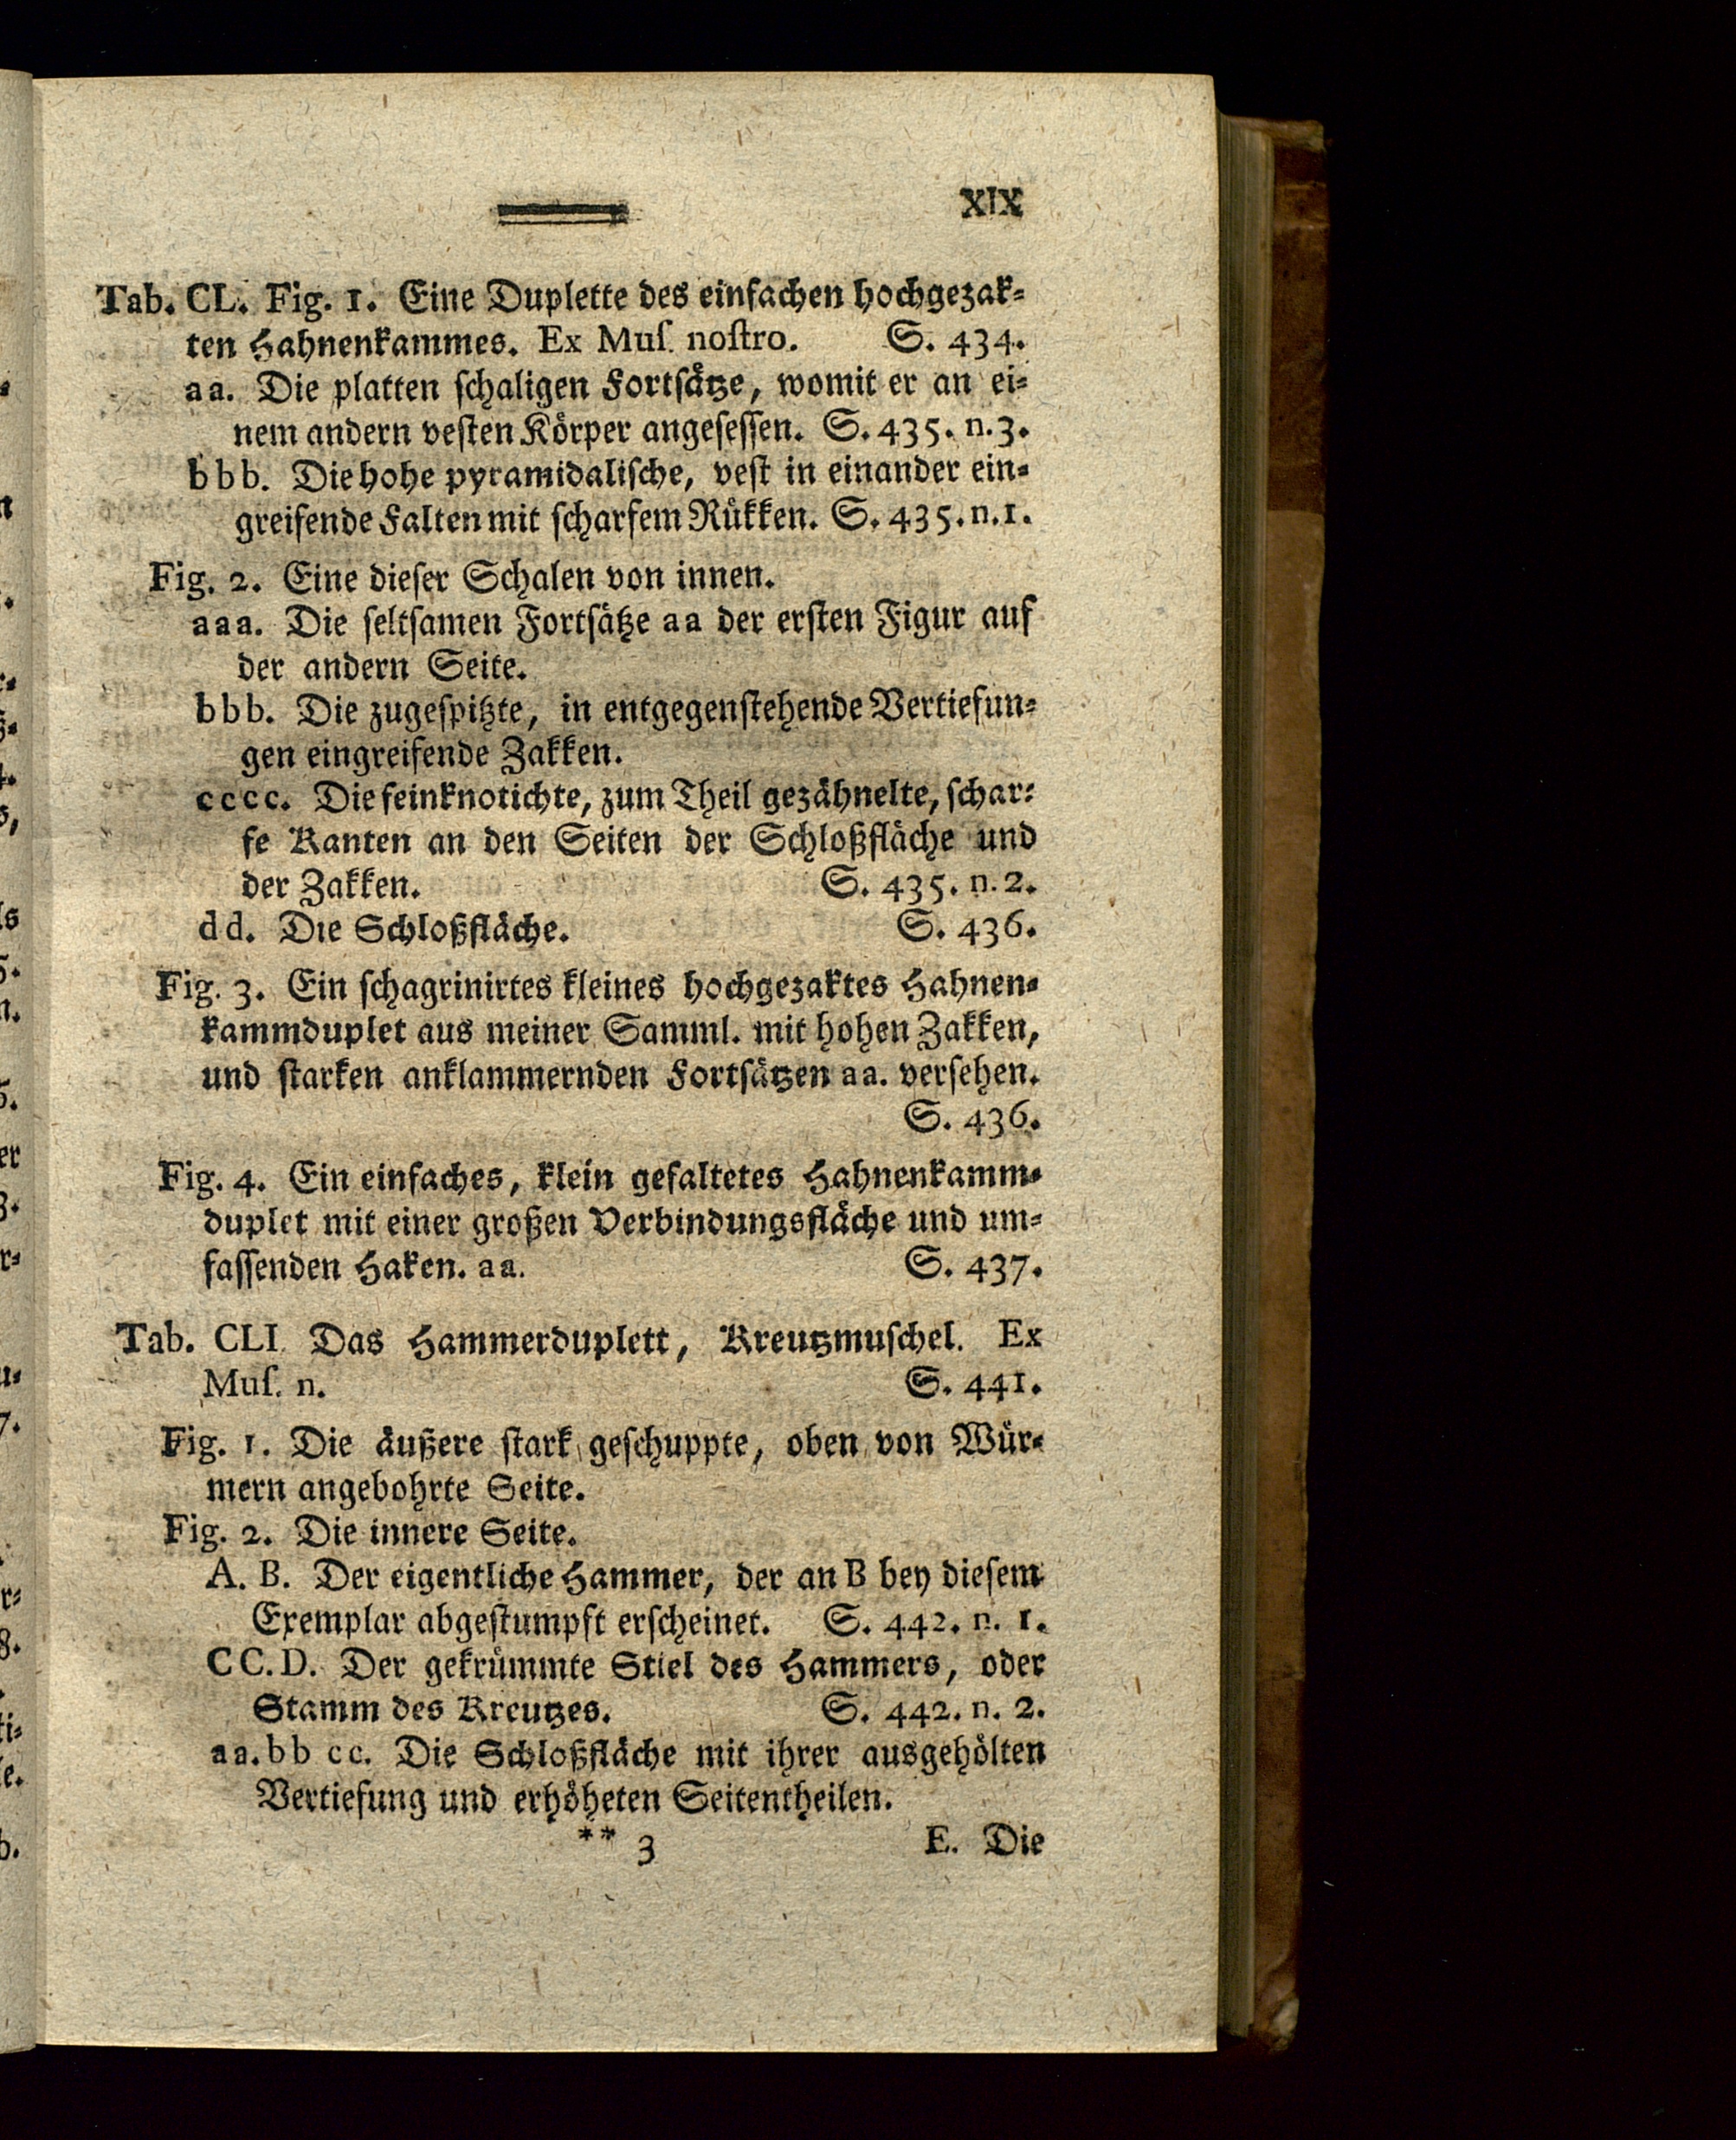 XIX
Tab. CL. Fig. 1. Eine Duplette des einfachen hochgezak-
ten Hahnenkammes. Ex Muſ. noſtro. S. 434.
aa. Die platten ſchaligen Fortſätze, womit er an ei-
nem andern veſten Körper angeſeſſen. S. 435. n. 3.
bbb. Die hohe pyramidaliſche, veſt in einander ein-
greifende Falten mit ſcharfem Rükken. S. 435. n. 1.
Fig. 2. Eine dieſer Schalen von innen.
aaa. Die ſeltſamen Fortſätze aa der erſten Figur auf
der andern Seite.
bbb. Die zugeſpitzte, in entgegenſtehende Vertiefun-
gen eingreifende Zakken.
cccc. Die feinknotichte, zum Theil gezähnelte, ſchar-
fe Kanten an den Seiten der Schloßfläche und
der Zakken. S. 435. n. 2.
dd. Die Schloßfläche. S. 436.
Fig. 3. Ein ſchagrinirtes kleines hochgezaktes Hahnen-
kammduplet aus meiner Samml. mit hohen Zakken,
und ſtarken anklammernden Fortſätzen aa. verſehen.
S. 436.
Fig. 4. Ein einfaches, klein gefaltetes Hahnenkamm-
duplet mit einer großen Verbindungsfläche und um-
faſſenden Haken. aa. S. 437.
Tab. CLI. Das Hammerduplett, Kreutzmuſchel. Ex
Muſ. n. S. 441.
Fig. 1. Die äußere ſtark geſchuppte, oben von Wür-
mern angebohrte Seite.
Fig. 2. Die innere Seite.
A. B. Der eigentliche Hammer, der an B bey dieſem
Exemplar abgeſtumpft erſcheinet. S. 442. n. 1.
CC. D. Der gekrümmte Stiel des Hammers, oder
Stamm des Kreutzes. S. 442. n. 2.
aa. bb cc. Die Schloßfläche mit ihrer ausgehölten
Vertiefung und erhöheten Seitentheilen.
** 3 E. Die